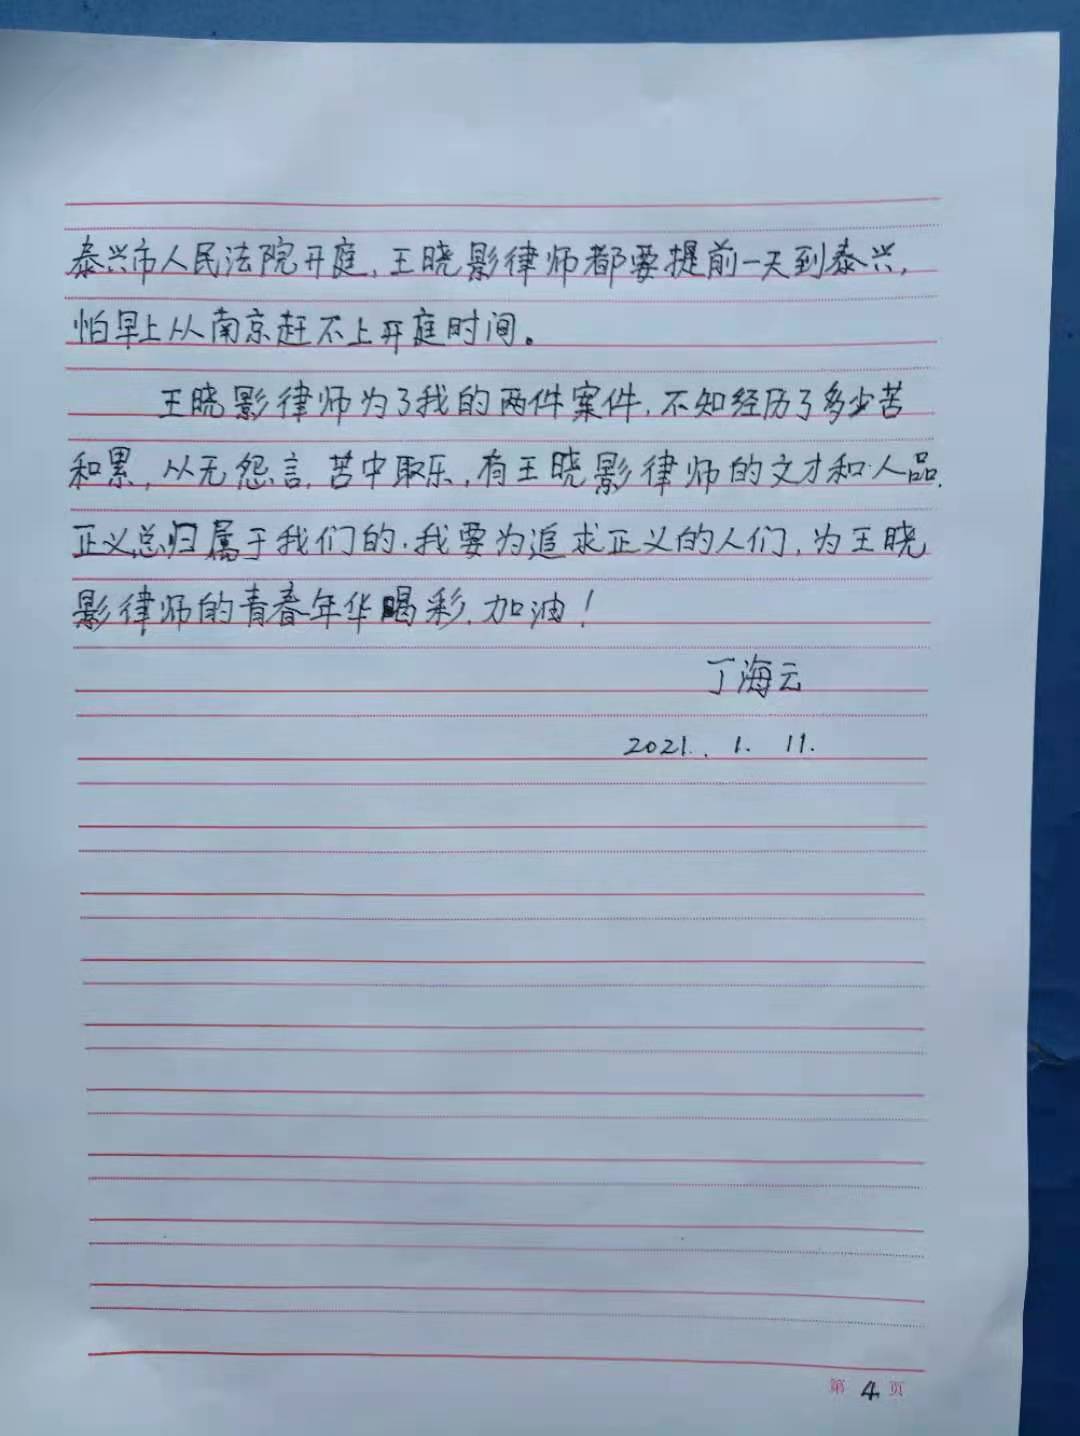 泰兴市人民法院开庭,王晓影律师都要提前一天到泰兴,
怕早上从南京赶不上开庭时间。
王晓影律师为了我的两件案件,不知经历了多少苦
和累,从无怨言,苦中取乐,有王晓影律师的文才和人品,
正义总归属于我们的.我要为追求正义的人们,为王晓
影律师的青春年华喝彩,加油!
丁海云
2021. 1. 11.
第 4 页